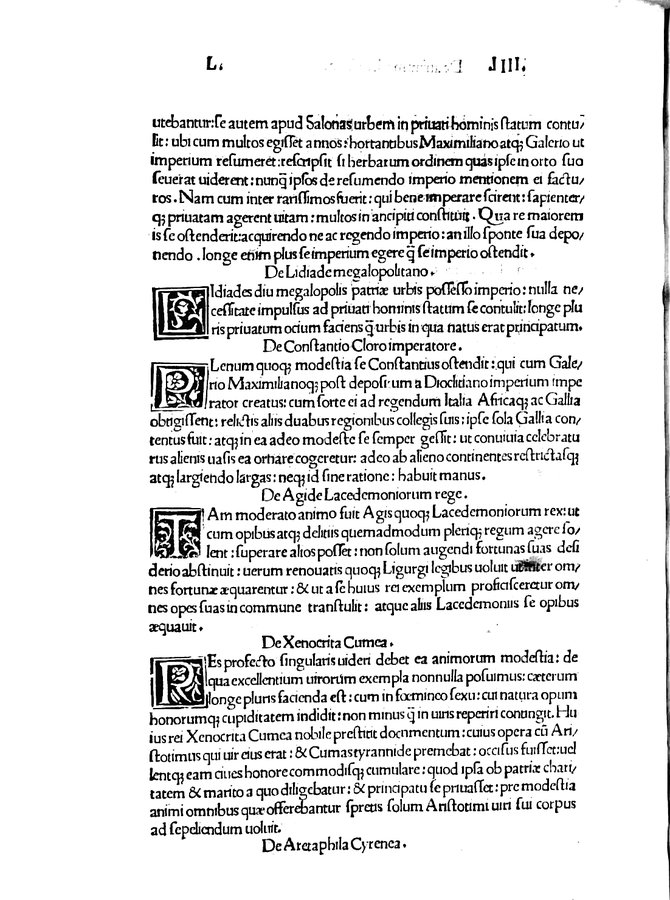 L. IIII.
utebantur: se autem apud Salonas urbem in priuati hominis statum contu/
lit: ubi cum multos egisset annos: hortantibus Maximiliano atq; Galerio ut
imperium resumeret: rescripsit si herbarum ordinem quas ipse in orto suo
seuerat uiderent: nunq̃ ipsos de resumendo imperio mentionem ei factu/
ros. Nam cum inter rarissimos fuerit: qui bene imperare scirent: sapienter/
q; priuatam agerent uitam: multos in ancipiti constituit. Qua re maiorem
is se ostenderit: acquirendo ne ac regendo imperio: an illo sponte sua depo/
nendo. longe enim plus se imperium egere q̃ se imperio ostendit.
De Lidiade megalopolitano.
LIdiades diu megalopolis patriæ urbis possesso imperio: nulla ne/
cessitate impulsus ad priuati hominis statum se contulit: longe plu
ris priuatum ocium faciens q̃ urbis in qua natus erat principatum.
De Constantio Cloro imperatore.
PLenum quoq; modestia se Constantius ostendit: qui cum Gale/
rio Maximilianoq; post deposi: um a Dioclitiano imperium impe
rator creatus: cum sorte ei ad regendum Italia Africaq; ac Gallia
obtigissent: relictis aliis duabus regionibus collegis suis: ipse sola Gallia con/
tentus fuit: atq; in ea adeo modeste se semper gessit: ut conuiuia celebratu
rus alienis uasis ea ornare cogeretur: adeo ab alieno continentes restrictasq;
atq; largiendo largas: neq; id sine ratione: habuit manus.
De Agide Lacedemoniorum rege.
TAm moderato animo fuit Agis quoq; Lacedemoniorum rex: ut
cum opibus atq; delitiis quemadmodum pleriq; regum agere so/
lent: superare alios posset: non solum augendi fortunas suas desi
derio abstinuit: uerum renouatis quoq; Ligurgi legibus uoluit om/
nes fortunæ æquarentur: & ut a se huius rei exemplum proficisceretur om/
nes opes suas in commune transtulit: atque aliis Lacedemoniis se opibus
æquauit.
De Xenocrita Cumea.
REs profecto singularis uideri debet ea animorum modestia: de
qua excellentium uirorum exempla nonnulla posuimus: cæterum
longe pluris facienda est: cum in fœmineo sexu: cui natura opum
honorumq; cupiditatem indidit: non minus q̃ in uiris reperiri contingit. Hu
ius rei Xenocrita Cumea nobile prestitit documentum: cuius opera cũ Ari/
stotimus qui uir eius erat: & Cumas tyrannide premebat: occisus fuisset: uel
lentq; eam ciues honore commodisq; cumulare: quod ipsa ob patriæ chari/
tatem & marito a quo diligebatur: & principatu se priuasset: pre modestia
animi omnibus quæ offerebantur spretis solum Aristotimi uiri sui corpus
ad sepeliendum uoluit.
De Aretaphila Cyrenea.